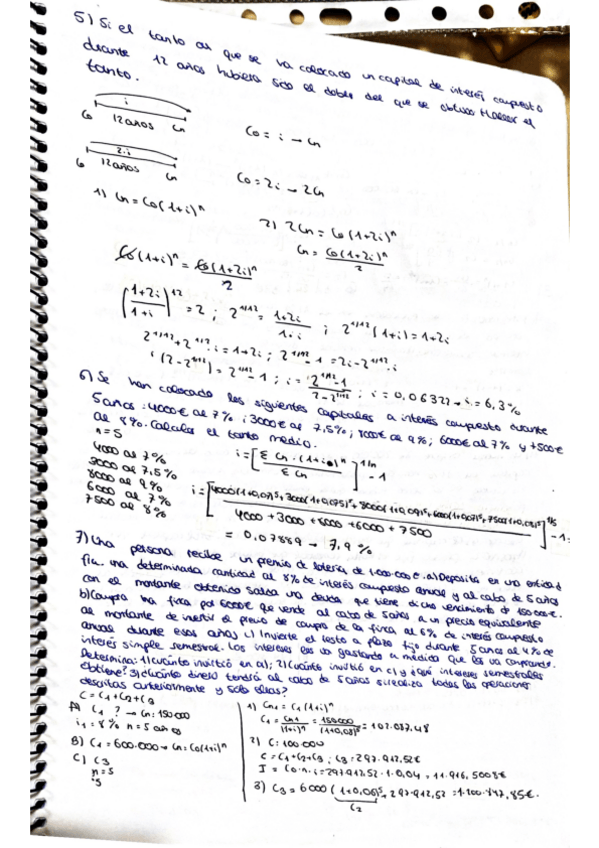 5) Si el tanto al que se va colocado un capital de interés compuesto
durante 12 años hubiera sido el doble del que se obtuvo Hallar el
tanto.
i
Co 12 años Cn
Co = i → Cn
2·i
Co 12 años Cn
Co = 2i → 2Cn
1) Cn = Co(1+i)^n
2) 2Cn = Co(1+2i)^n
Cn = Co(1+2i)^n / 2
Co(1+i)^n = Co(1+2i)^n / 2
(1+2i / 1+i)^12 = 2 ; 2^1/12 = 1+2i / 1+i ; 2^1/12 (1+i) = 1+2i
2^1/12 + 2^1/12 · i = 1+2i ; 2^1/12 - 1 = 2i - 2^1/12 · i
i (2 - 2^1/12) = 2^1/12 - 1 ; i = 2^1/12 - 1 / 2 - 2^1/12 ; i = 0,0632 → i = 6,3%
6) Se han colocado los siguientes capitales a interés compuesto durante
5 años: 4000€ al 7%; 3000€ al 7,5%; 8000€ al 9%; 6000€ al 7% y 7500€
al 8%. Calcular el tanto medio.
n = 5
4000 al 7%
3000 al 7,5%
8000 al 9%
6000 al 7%
7500 al 8%
i = [Σ Cn · (1+i)^n / Σ Cn]^1/n - 1
i = [4000(1+0,07)^5 + 3000(1+0,075)^5 + 8000(1+0,09)^5 + 6000(1+0,07)^5 + 7500(1+0,08)^5 / 4000 + 3000 + 8000 + 6000 + 7500]^1/5 - 1 =
= 0,07889 → 7,9%
7) Una persona recibe un premio de lotería de 1.000.000€. a) Deposita en una entidad
fra. una determinada cantidad al 8% de interés compuesto anual y al cabo de 5 años
con el montante obtenido salda una deuda que tiene dicho vencimiento de 150.000€.
b) Compra una finca por 600000€ que vende al cabo de 5 años a un precio equivalente
al montante de invertir el precio de compra de la finca al 6% de interés compuesto
anual durante esos años c) Invierte el resto a plazo fijo durante 5 años al 4% de
interés simple semestral. Los intereses los va gastando a medida que los va cobrando.
Determina: 1) Cuánto invirtió en a); 2) Cuánto invirtió en c) y ¿qué intereses semestrales
obtiene? 3) ¿Cuánto dinero tendrá al cabo de 5 años si realiza todas las operaciones
descritas anteriormente y solo ellas?
C = C1+C2+C3
A) C1 ? → Cn: 150000
i1 = 8% n = 5 años
B) C2 = 600.000 → Cn = Co(1+i)^n
C) C3
n = 5
1) Cn1 = C1(1+i)^n
C1 = Cn1 / (1+i)^n = 150000 / (1+0,08)^5 = 102.087,48
2) C: 100.000
C = C1+C2+C3 ; C3 = 297.912,52€
I = Co·n·i = 297.912,52 · 1 · 0,04 = 11.916,5008€
3) C3 = 6000 (1+0,06)^5 + 297.912,52 = 1.100.847,85€.
C2